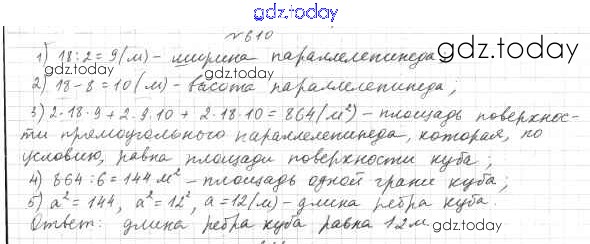 gdz.today
№ 610
1) 18:2=9(м) - ширина параллелепипеда;
gdz.today
gdz.today
2) 18-8=10(м) - высота параллелепипеда;
3) 2·18·9+2·9·10+2·18·10=864(м²) - площадь поверхнос-
ти прямоугольного параллелепипеда, которая, по
условию, равна площади поверхности куба;
4) 864:6=144 м² - площадь одной грани куба;
5) a²=144, a²=12², a=12(м) - длина ребра куба.
Ответ: длина ребра куба равна 12 м.
gdz.today
gdz.today